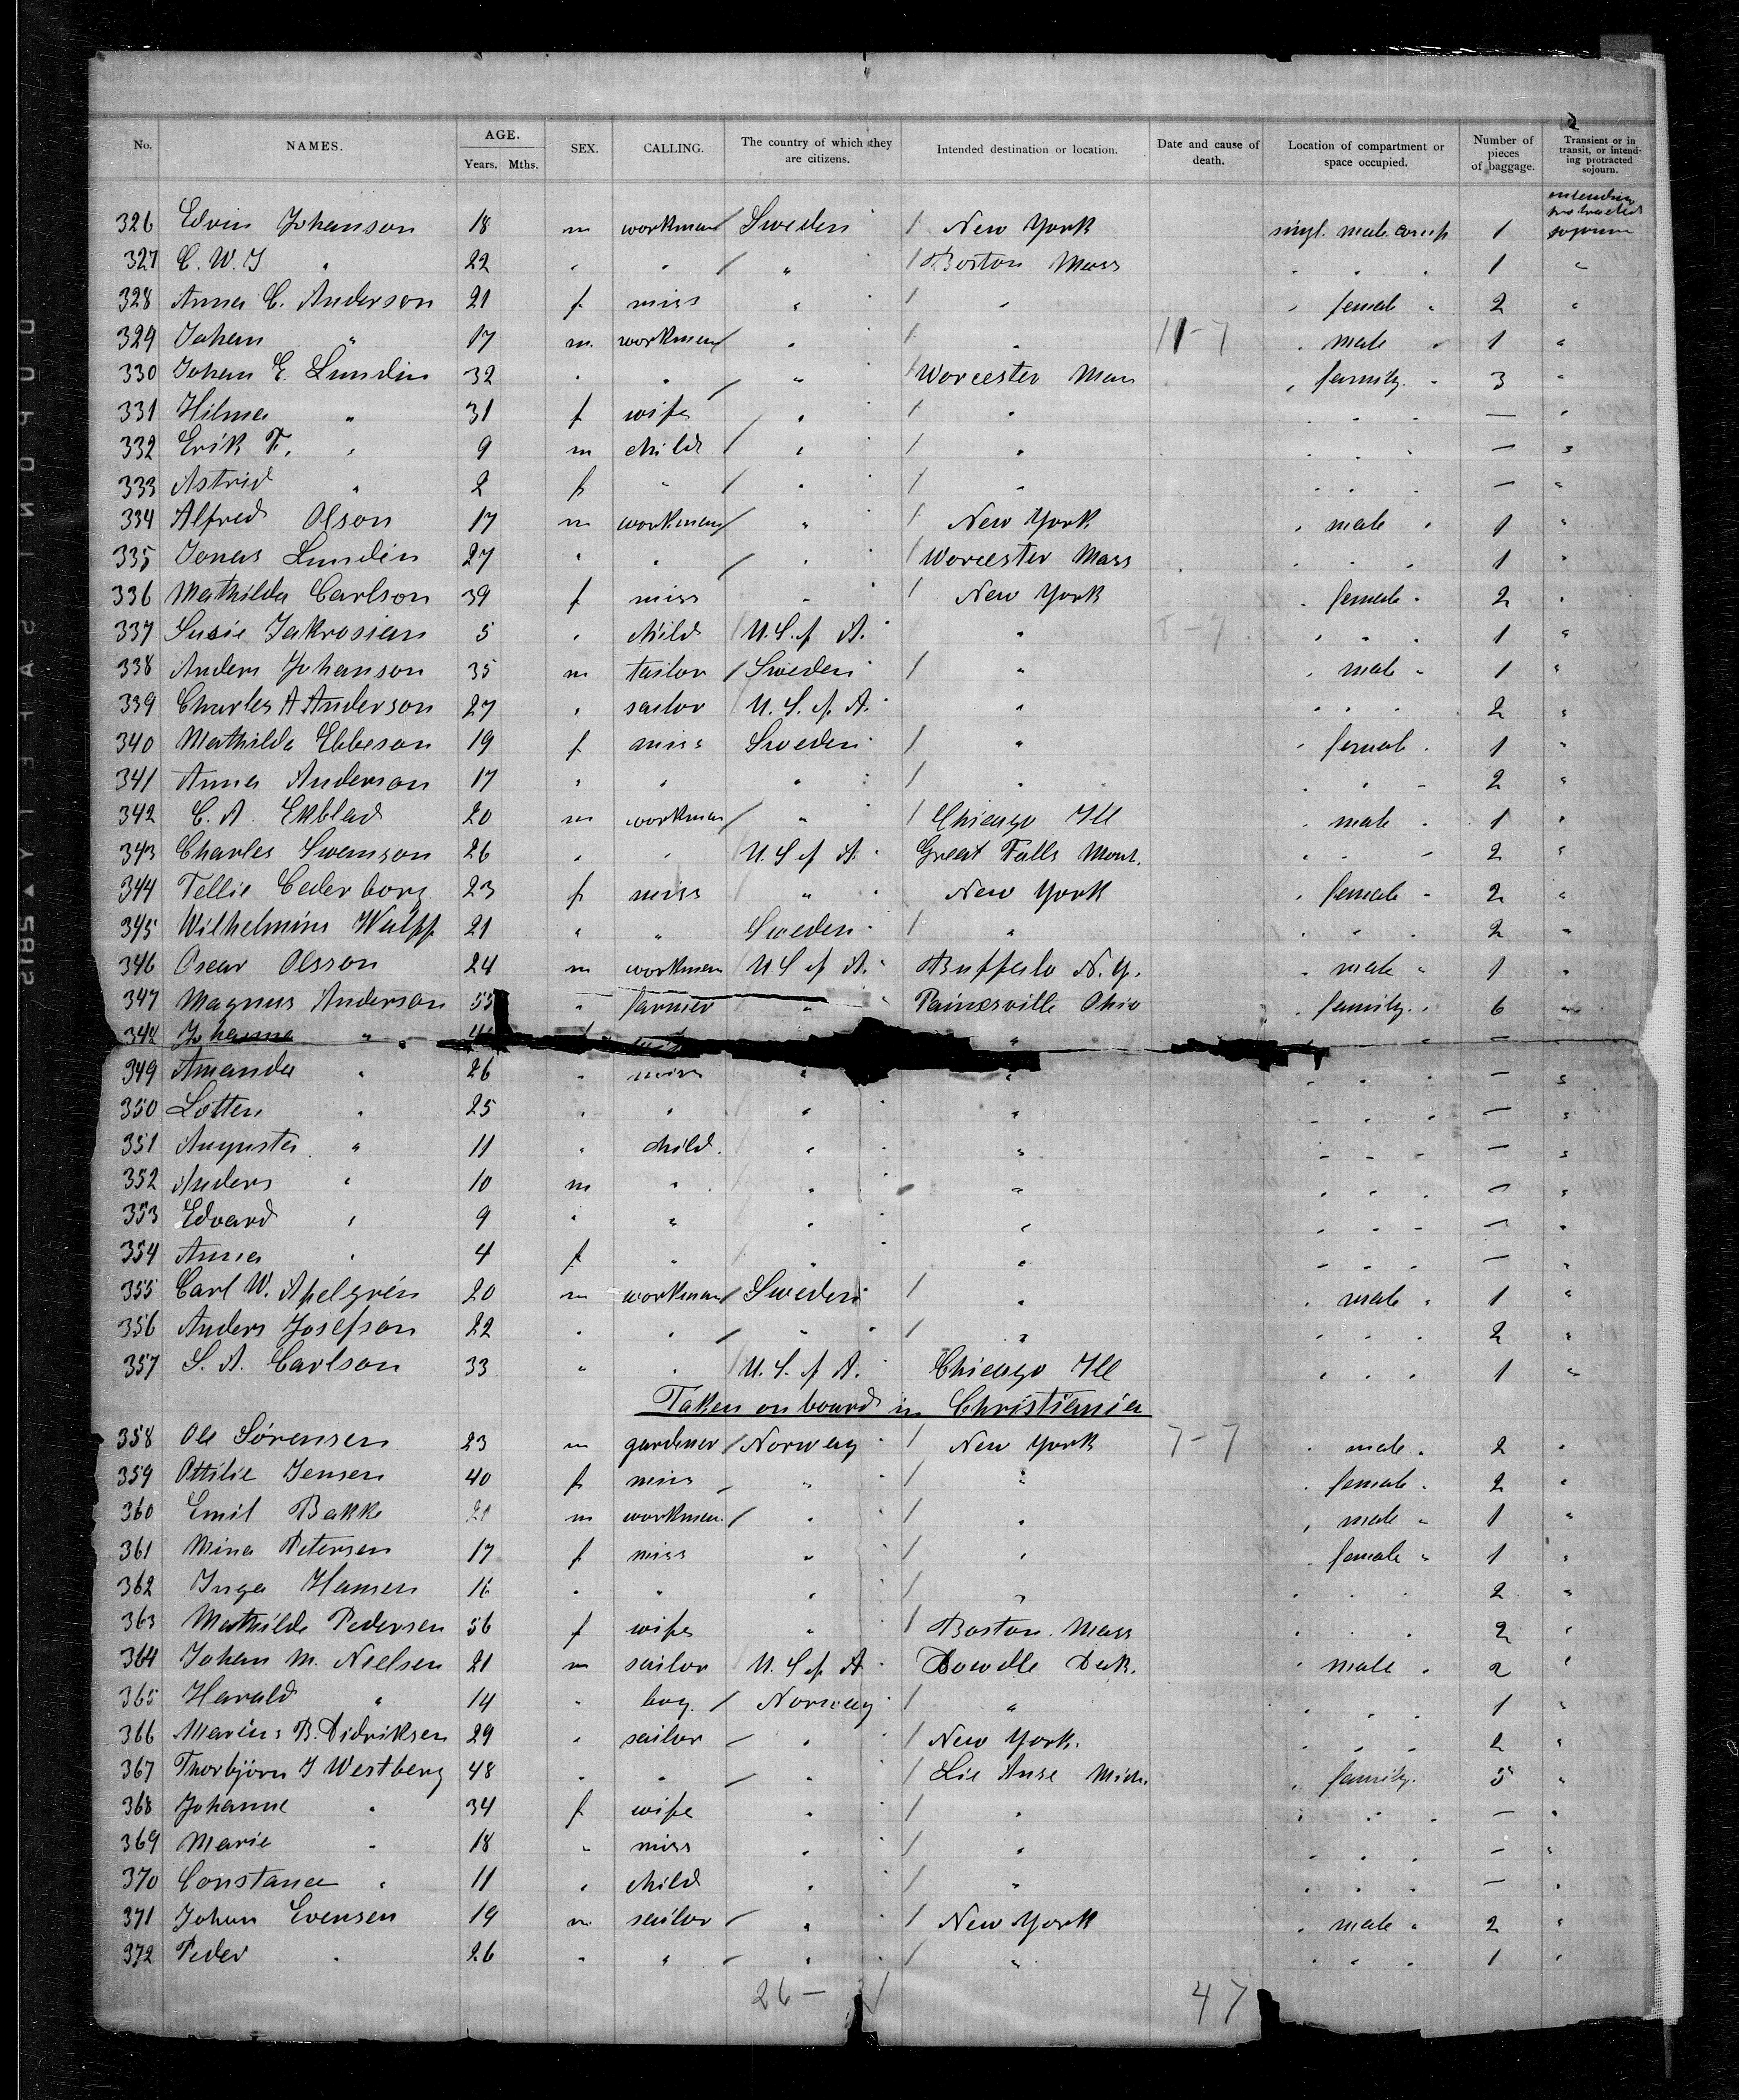 No. NAMES. AGE. Years. Mths. SEX. CALLING. The country of which they are citizens. Intended destination or location. Date and cause of death. Location of compartment or space occupied. Number of pieces of baggage. Transient or in transit, or intending protracted sojourn.
intending protracted
326 Edvin Johanson 18 m workman / Sweden / New York singl. male comp 1 sojourn
327 C. W. J " 22 " " / " / Boston Mass " " " 1 "
328 Anna C. Anderson 21 f miss " / " " female " 2 "
329 Johan " 17 m. workman / " / " 11-7 " male " 1 "
330 Johan E. Lundin 32 " " / " / Worcester Mass " family " 3 "
331 Hilma " 31 f wife / " / " " " " — "
332 Erik F. " 9 m child / " / " " " " — "
333 Astrid " 2 f " / " / " " " " — "
334 Alfred Olson 17 m workman / " / New York " male " 1 "
335 Jonas Lundin 27 " " / " / Worcester Mass " " " 1 "
336 Mathilda Carlson 39 f miss " / New York " female " 2 "
337 Susie Jakrosian 5 " child / U.S. of A. " 8-7 " " " 1 "
338 Anders Johanson 35 m tailor / Sweden / " " male " 1 "
339 Charles A Anderson 27 " sailor / U.S. of A. " " " " 2 "
340 Mathilda Ebbeson 19 f miss Sweden / " " female " 1 "
341 Anna Anderson 17 " " " / " " " " 2 "
342 C. A. Ekblad 20 m workman / " / Chicago Ill " male " 1 "
343 Charles Swenson 26 " " U.S. of A. Great Falls Mont. " " " 2 "
344 Tellie Cederborg 23 f miss / " New York " female " 2 "
345 Wilhelmina Wulff 21 " " Sweden / " " " " 2 "
346 Oscar Olsson 24 m workman / U.S. of A. Buffalo N.Y. " male " 1 "
347 Magnus Anderson 55 " farmer " Painesville Ohio " family " 6 "
348 Johanna " " " — "
349 Amanda " 26 " miss " " " " " — "
350 Lotten " 25 " " / " " " " " — "
351 Augusta " 11 " child. " " " " " — "
352 Anders " 10 m " / " " " " " — "
353 Edvard " 9 " " / " " " " " — "
354 Anna " 4 f " / " " " " " — "
355 Carl W. Apelgrén 20 m workman / Sweden / " " male " 1 "
356 Anders Josefson 22 " " / " / " " " " 2 "
357 S. A. Carlson 33 " " / U.S. of A. Chicago Ill " " " 1 "
Taken on board in Christiania
358 Ole Sørensen 23 m gardener / Norway / New York 7-7 " male " 2 "
359 Ottilie Jensen 40 f miss / " / " " female " 2 "
360 Emil Bakke 21 m workman / " / " " male " 1 "
361 Mina Petersen 17 f miss " / " " female " 1 "
362 Inga Hansen 16 " " " / " " " " 2 "
363 Mathilde Pedersen 56 f wife " / Boston Mass " " " 2 "
364 Johan M. Nielsen 21 m sailor U.S. of A. Dowelle Dak. " male " 2 "
365 Harald " 14 " boy / Norway / " " " " 1 "
366 Marius B. Didriksen 29 " sailor / " / New York. " " " 2 "
367 Thorbjörn J Westberg 48 " " / " / Lie Anse Mich. " family " 5 "
368 Johanne " 34 f wife " / " " " " — "
369 Marie " 18 " miss " / " " " " — "
370 Constance " 11 " child " / " " " " — "
371 Johan Evensen 19 m sailor / " / New York " male " 2 "
372 Peder " 26 " " / " / " " " " 1 "
26 — 21 47